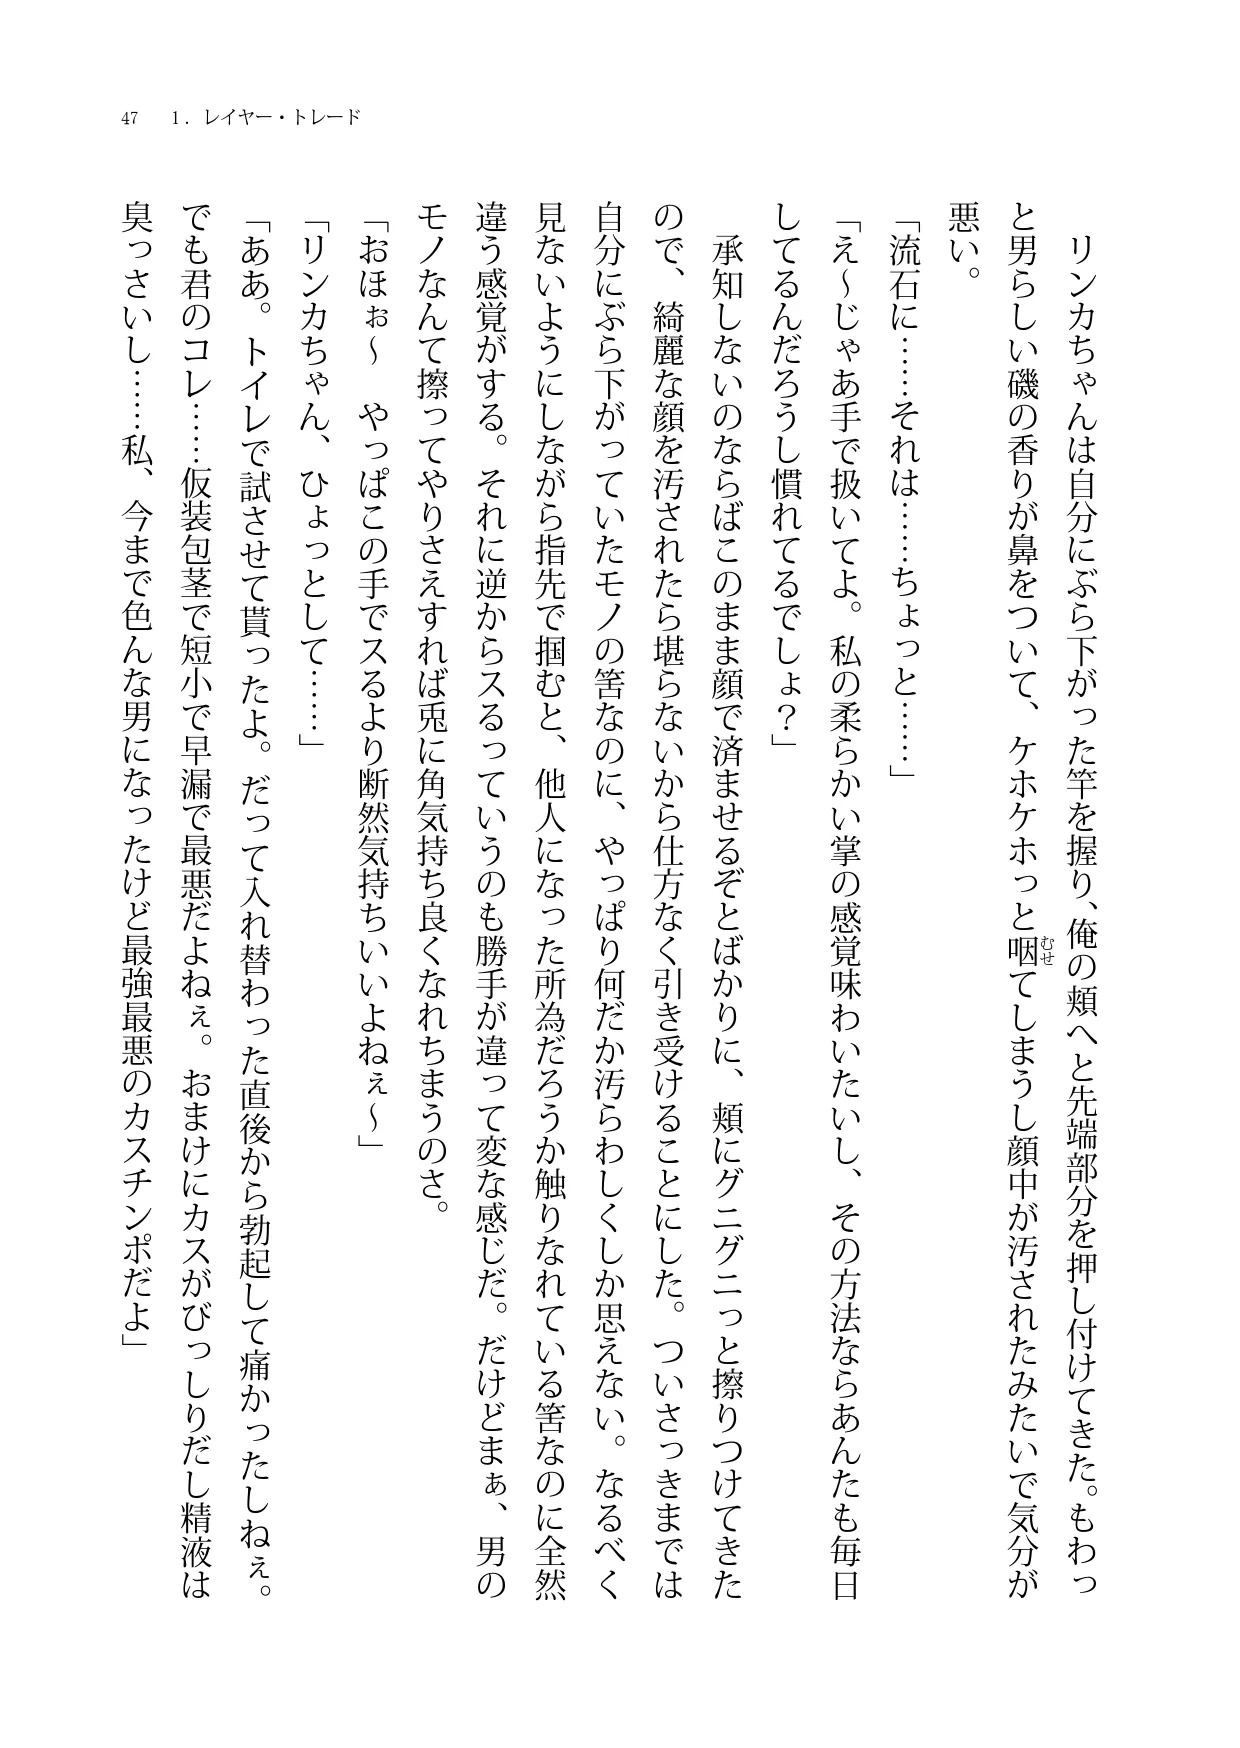 47　1．レイヤー・トレード
　リンカちゃんは自分にぶら下がった竿を握り、俺の頬へと先端部分を押し付けてきた。もわっ
と男らしい磯の香りが鼻をついて、ケホケホっと咽てしまうし顔中が汚されたみたいで気分が
むせ
悪い。
「流石に……それは……ちょっと……」
「え～じゃあ手で扱いてよ。私の柔らかい掌の感覚味わいたいし、その方法ならあんたも毎日
してるんだろうし慣れてるでしょ？」
　承知しないのならばこのまま顔で済ませるぞとばかりに、頬にグニグニっと擦りつけてきた
ので、綺麗な顔を汚されたら堪らないから仕方なく引き受けることにした。ついさっきまでは
自分にぶら下がっていたモノの筈なのに、やっぱり何だか汚らわしくしか思えない。なるべく
見ないようにしながら指先で掴むと、他人になった所為だろうか触りなれている筈なのに全然
違う感覚がする。それに逆からスるっていうのも勝手が違って変な感じだ。だけどまぁ、男の
モノなんて擦ってやりさえすれば兎に角気持ち良くなれちまうのさ。
「おほぉ～　やっぱこの手でスるより断然気持ちいいよねぇ～」
「リンカちゃん、ひょっとして……」
「ああ。トイレで試させて貰ったよ。だって入れ替わった直後から勃起して痛かったしねぇ。
でも君のコレ……仮装包茎で短小で早漏で最悪だよねぇ。おまけにカスがびっしりだし精液は
臭っさいし……私、今まで色んな男になったけど最強最悪のカスチンポだよ」